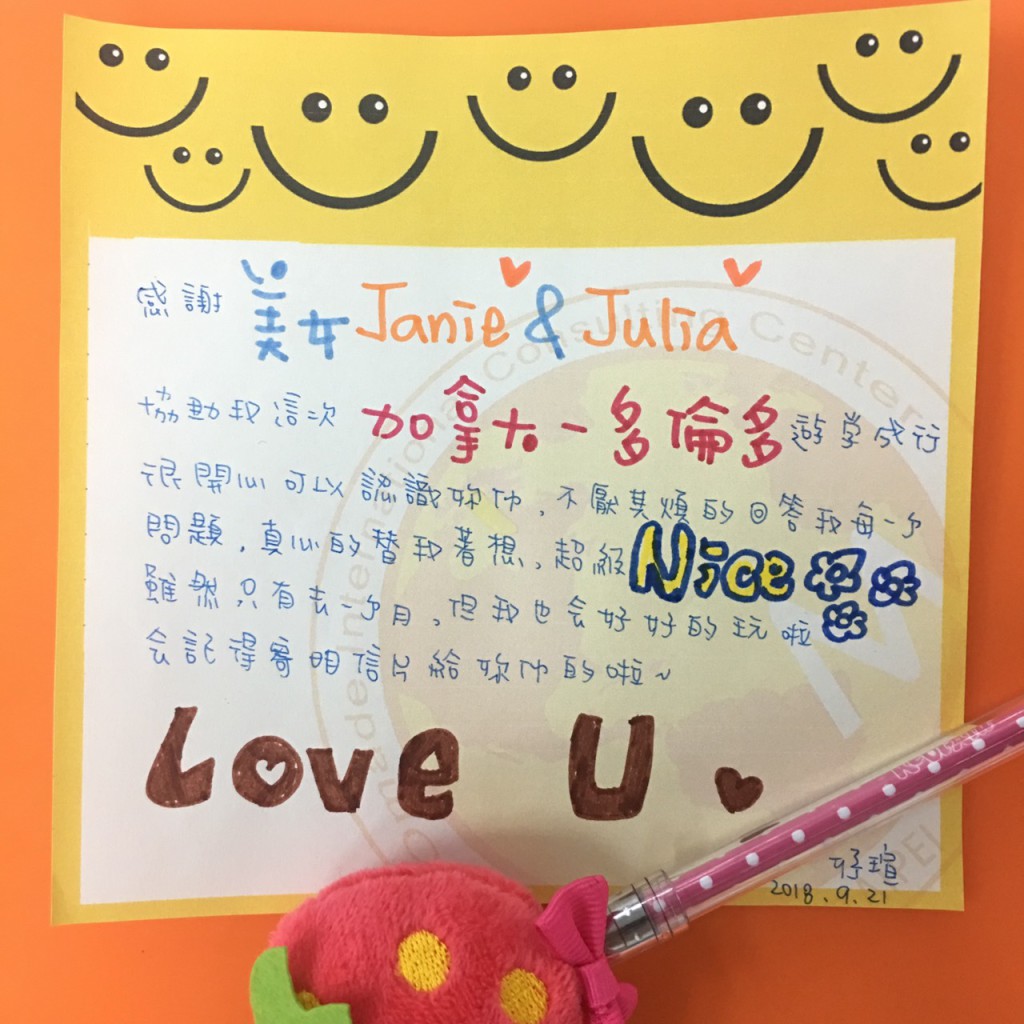 感謝 美女 Janie & Julia
協助我這次 加拿大-多倫多 遊學成行
很開心可以認識妳們，不厭其煩的回答我每一个
問題，真心的替我著想，超級 Nice
雖然只有去一个月，但我也会好好的玩啦
会記得寄明信片給妳們的啦~
Love U
2018.9.21